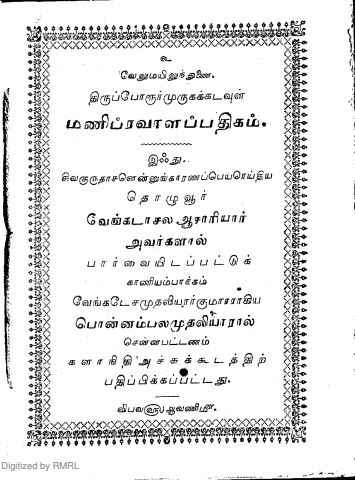 உ
வேலுமயிலுந்துணை.
திருப்போரூர்முருகக்கடவுள்
மணிப்ரவாளப்பதிகம்.
இஃது.
சிவகுருதாசனென்னுங்காரணப்பெயரெய்திய
தொழுவூர்
வேங்கடாசல ஆசாரியார்
அவர்களால்
பார்வையிடப்பட்டுக்
காணியம்பாக்கம்
வேங்கடேசமுதலியார்குமாரராகிய
பொன்னம்பலமுதலியாரால்
சென்னபட்டணம்
களாநிதி அச்சுக்கூடத்திற்
பதிப்பிக்கப்பட்டது.
விபவ௵ ஆவணி௴.
Digitized by RMRL